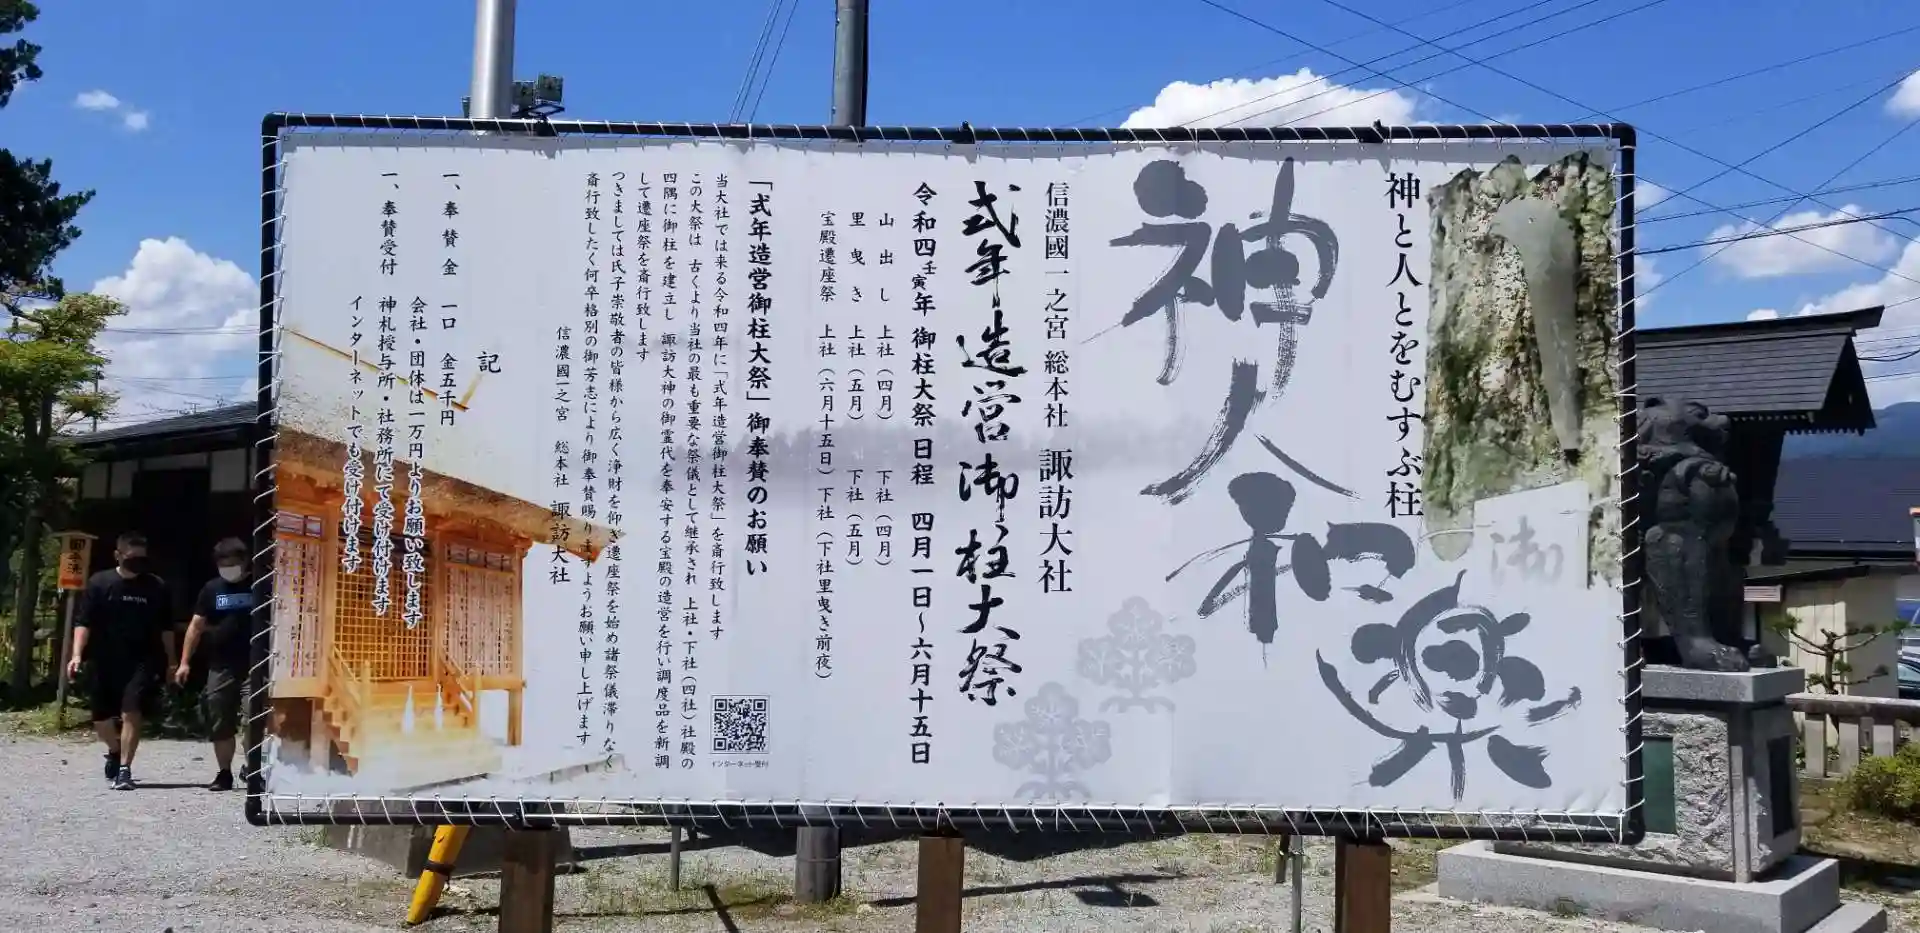 神と人とをむすぶ柱
神人和楽
信濃國一之宮 総本社 諏訪大社
式年造営御柱大祭
令和四壬寅年 御柱大祭 日程 四月一日~六月十五日
山出し 上社(四月) 下社(四月)
里曳き 上社(五月) 下社(五月)
宝殿遷座祭 上社(六月十五日)下社(下社里曳き前夜)
「式年造営御柱大祭」御奉賛のお願い
当大社では来る令和四年に「式年造営御柱大祭」を斎行致します
この大祭は 古くより当社の最も重要な祭儀として継承され 上社・下社(四社)社殿の
四隅に御柱を建立し 諏訪大神の御霊代を奉安する宝殿の造営を行い調度品を新調
して遷座祭を斎行致します
つきましては氏子崇敬者の皆様から広く浄財を仰ぎ遷座祭を始め諸祭儀滞りなく
斎行致したく何卒格別の御芳志により御奉賛賜りますようお願い申し上げます
信濃國一之宮 総本社 諏訪大社
記
一、奉賛金 一口 金五千円
会社・団体は一万円よりお願い致します
一、奉賛受付 神札授与所・社務所にて受け付けます
インターネットでも受け付けます
インターネット受付
御
御手洗